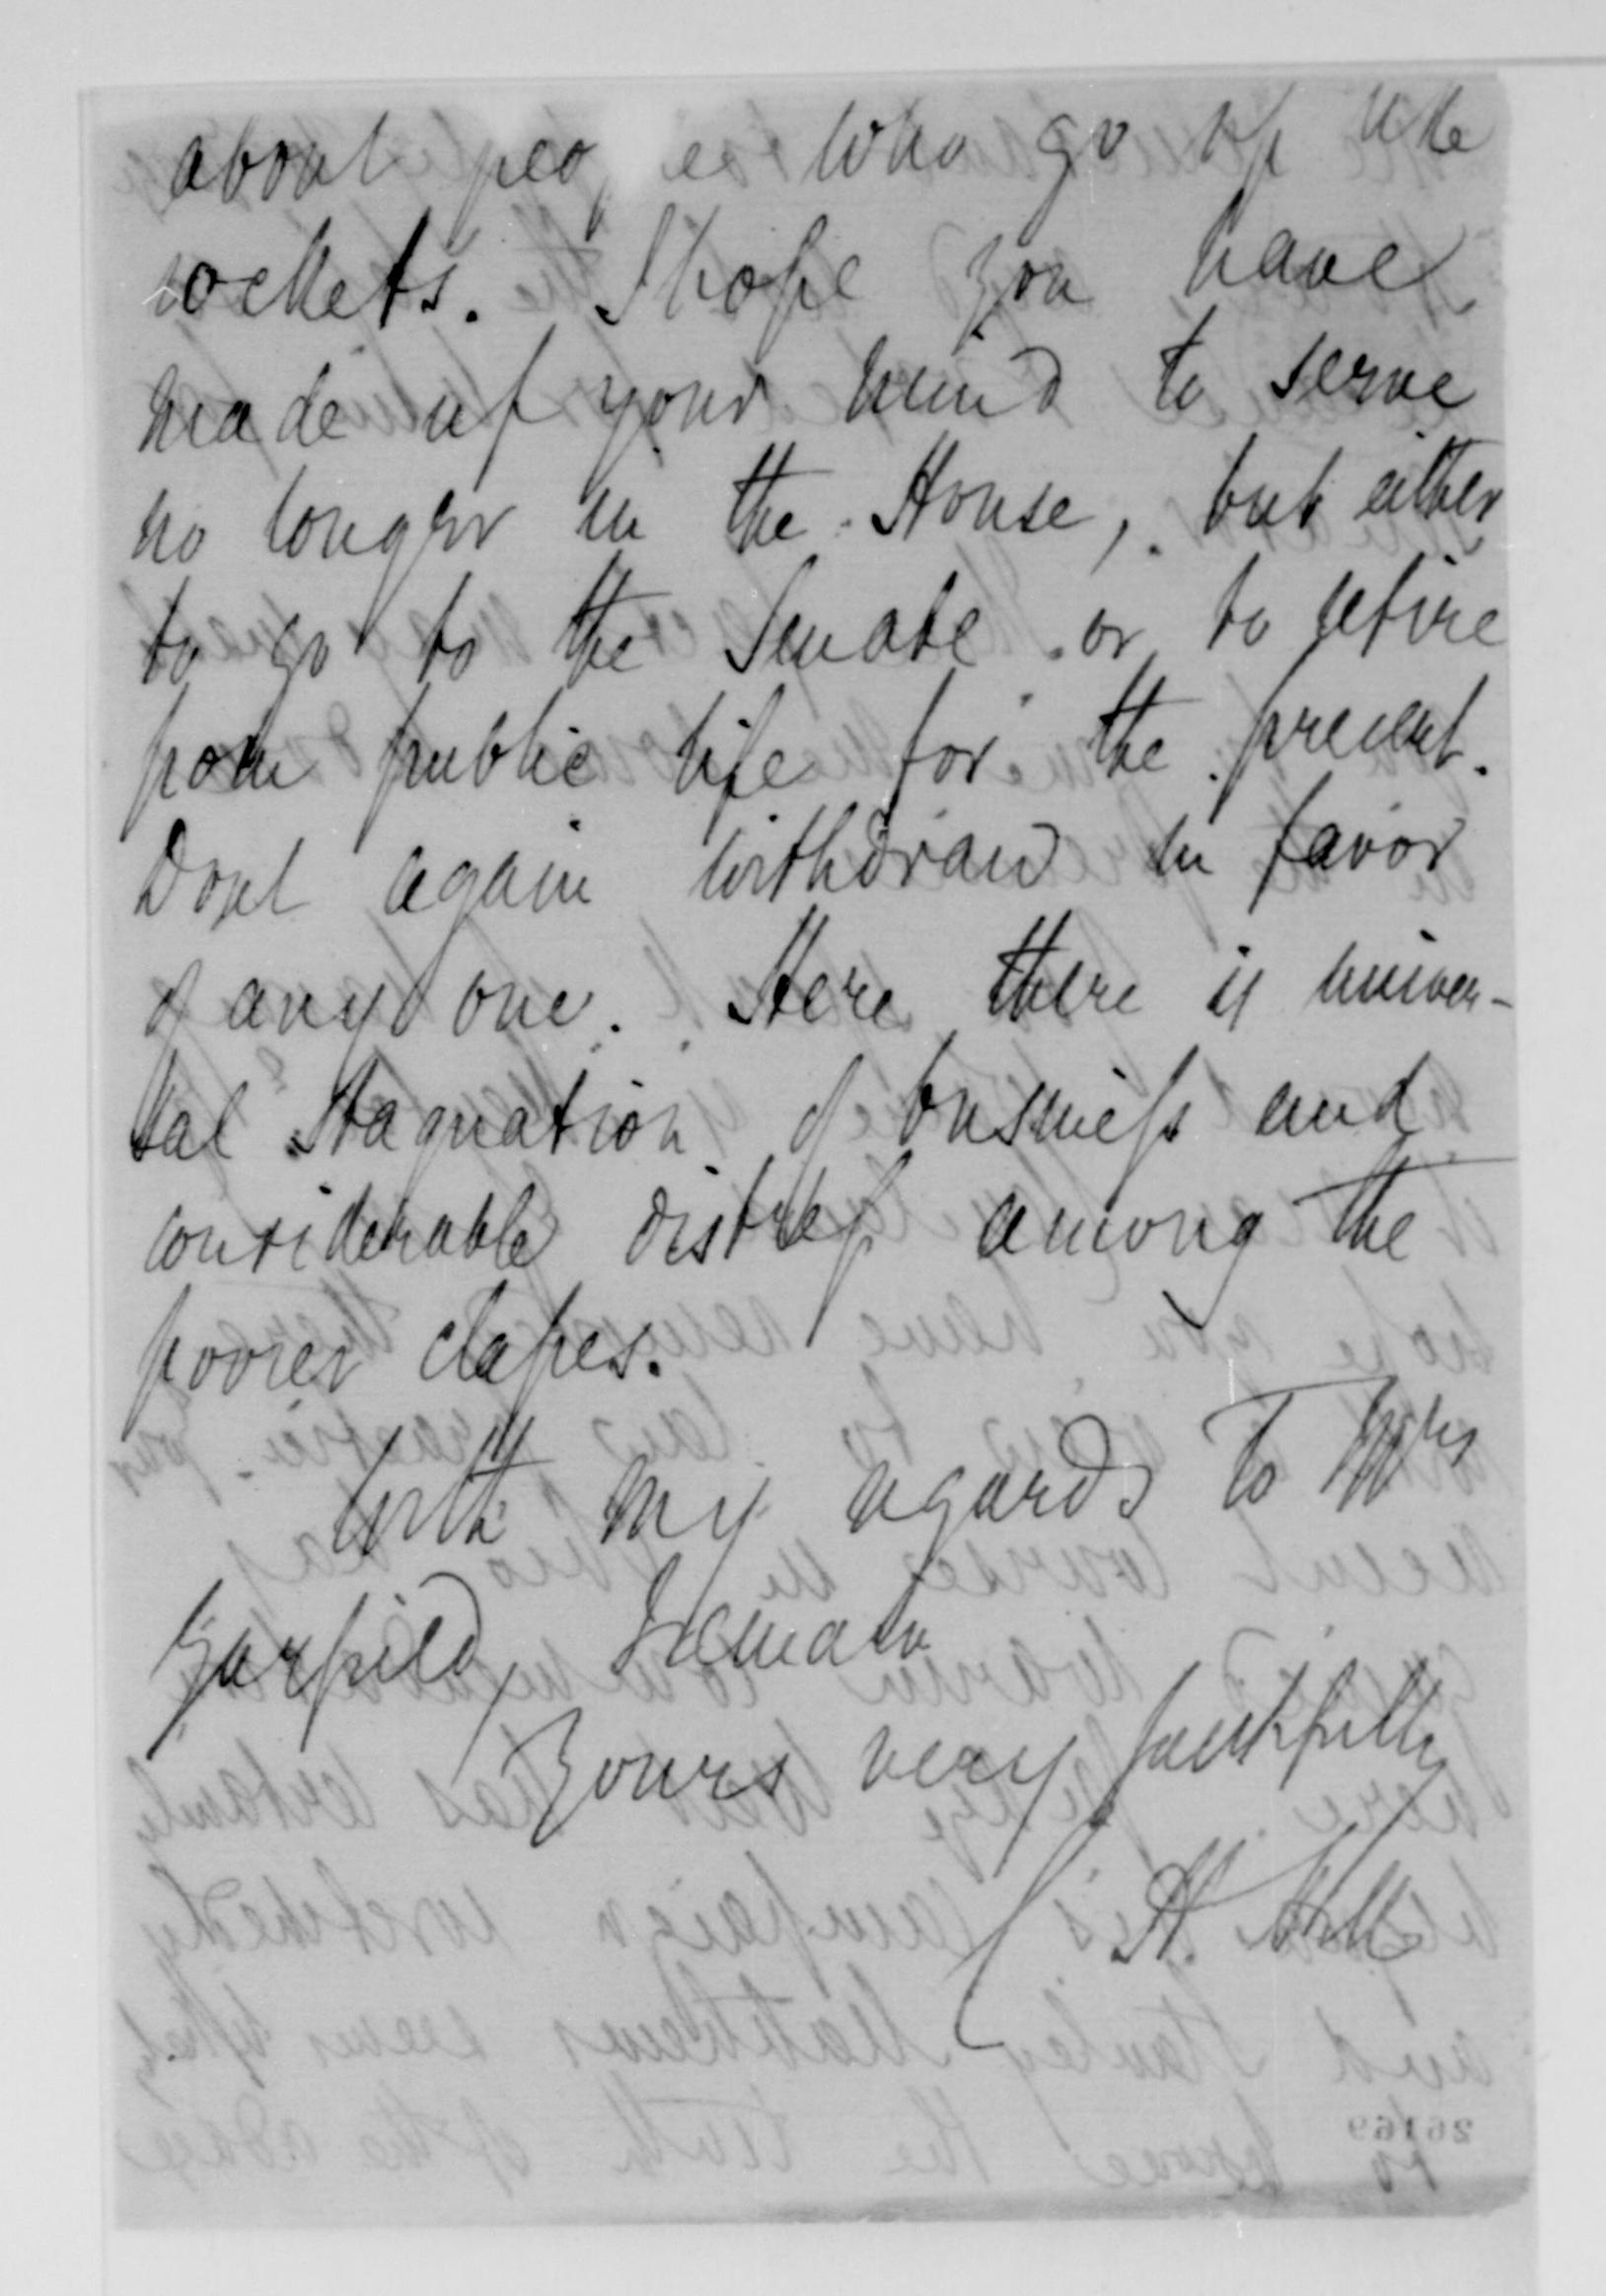 about peo e who go up like
rockets. I hope you have
made up your mind to serve
no longer in the House, but either
to go to the Senate or to retire
from public life for the present.
Dont again withdraw in favor
of any one. Here there is univer-
sal stagnation of business and
considerable distress among the
poorer classes.
With my regards to Mrs
Garfield, I remain
Yours very faithfully
C. H. Hill